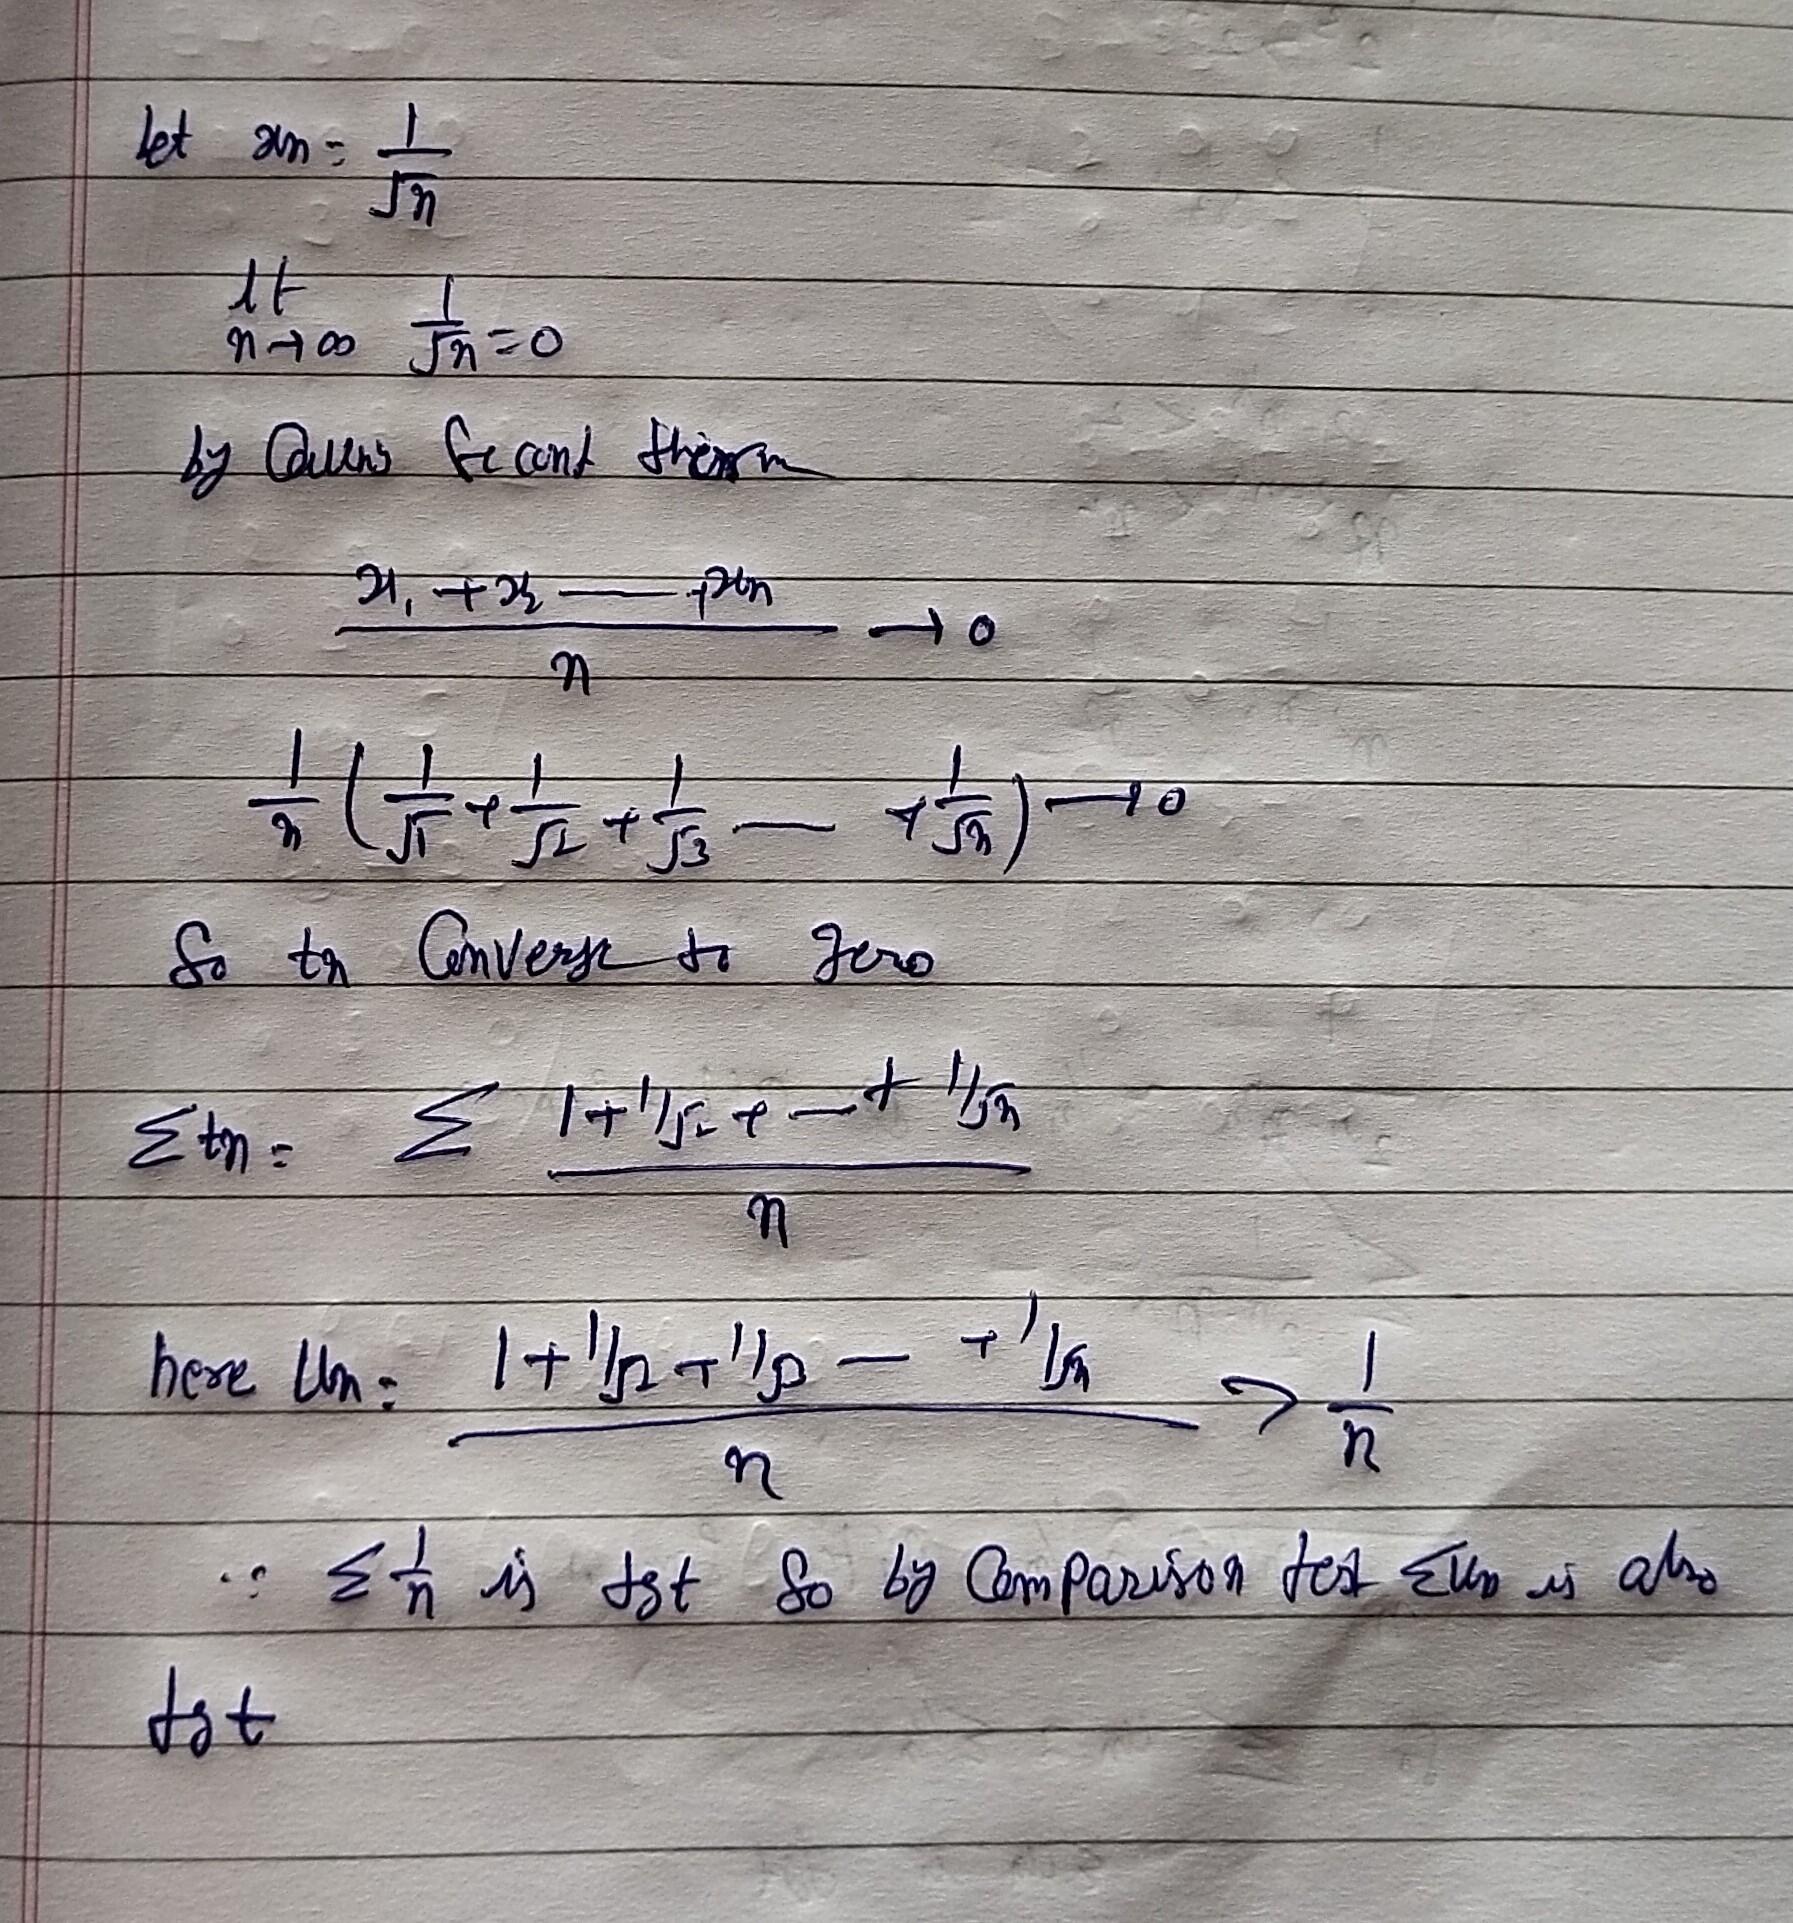 let xn = 1/√n
lt n→∞ 1/√n = 0
by second theorem
x1 + x2 — + xn / n → 0
1/n ( 1/√1 + 1/√2 + 1/√3 — + 1/√n ) → 0
So tn Converge to zero
Σtn = Σ 1 + 1/√2 + — + 1/√n / n
here Un = 1 + 1/√2 + 1/√3 — + 1/√n / n > 1/n
∵ Σ 1/n is dgt So by Comparison test ΣUn is also
dgt